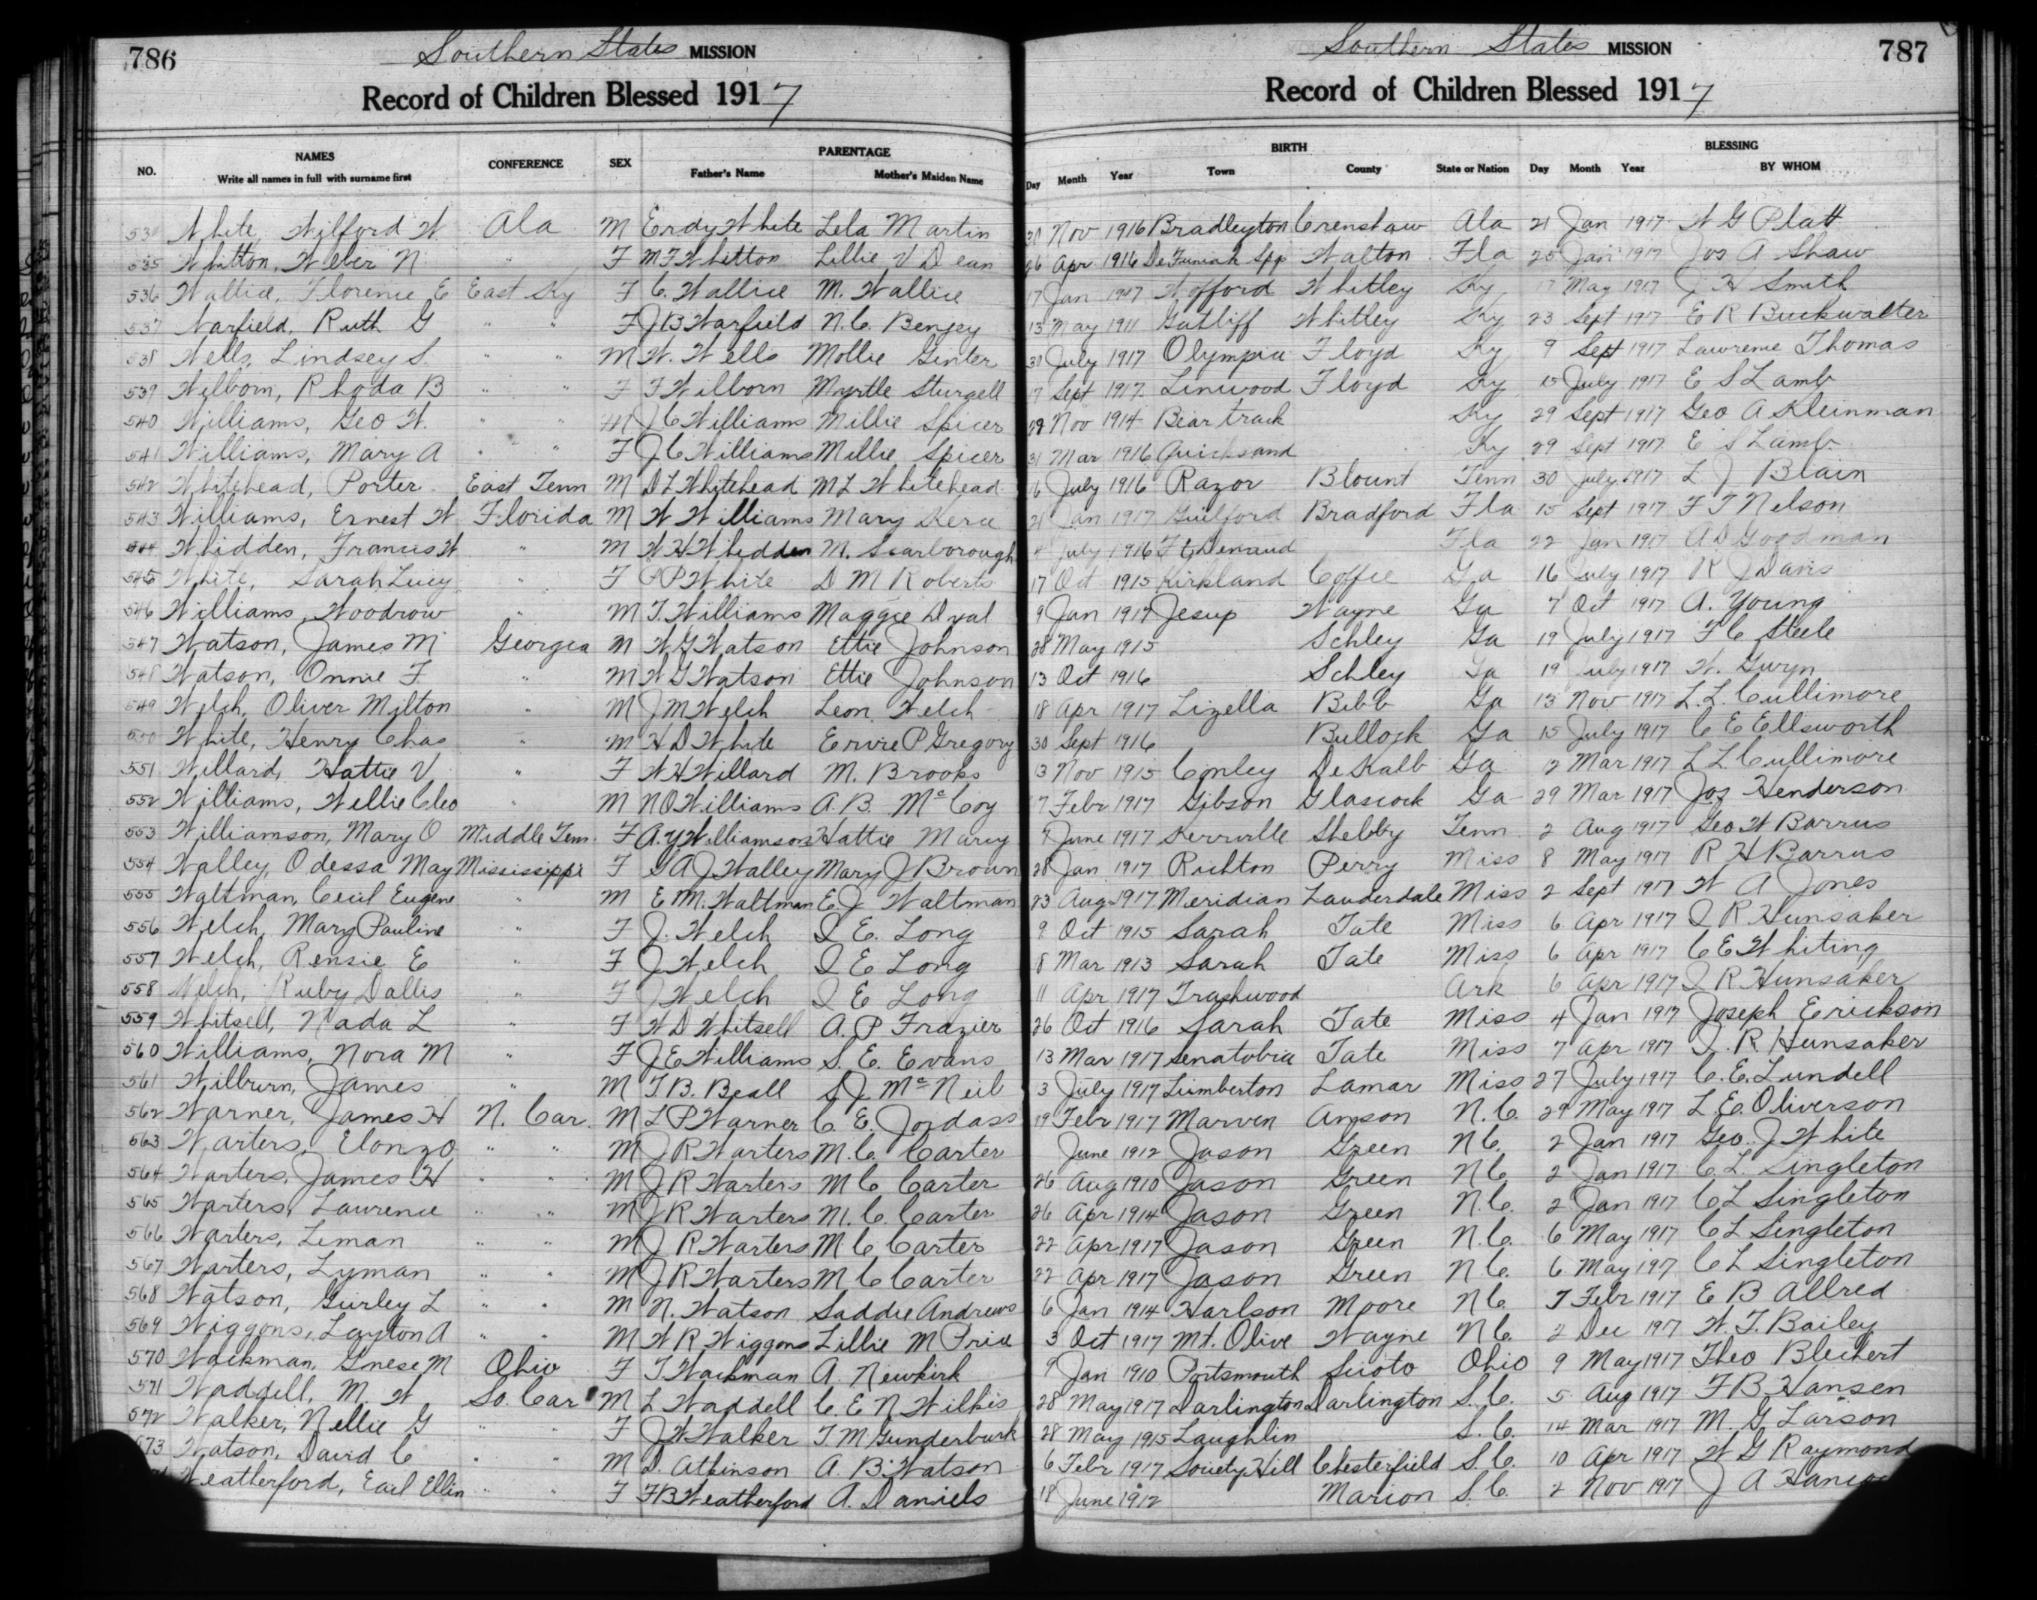 786 Southern States MISSION
Record of Children Blessed 1917
NO. NAMES Write all names in full with surname first CONFERENCE SEX PARENTAGE Father's Name Mother's Maiden Name
Southern States MISSION 787
Record of Children Blessed 1917
Day Month Year BIRTH Town County State or Nation Day Month Year BLESSING BY WHOM
534 White, Wilford W. Ala M Erdy White Lela Martin 20 Nov 1916 Bradleyton Crenshaw Ala 21 Jan 1917 W G Platt
535 Whitton, Weber N " F M F Whitton Lillie V Dean 26 Apr 1916 De Funiak Spp Walton Fla 25 Jan 1917 Jos A Shaw
536 Wallice, Florence E East Ky F C. Wallice M. Wallice 17 Jan 1917 Wofford Whitley Ky 17 May 1917 J H Smith
537 Warfield, Ruth G " " F J B Warfield N. C. Bengey 13 May 1911 Gatliff Whitley Ky 23 Sept 1917 E R Buckwalter
538 Wells, Lindsey S. " " M W. Wells Mollie Ginter 30 July 1917 Olympia Floyd Ky 9 Sept 1917 Lawrence Thomas
539 Welborn, Rhoda B " " F F Welborn Myrtle Sturgell 17 Sept 1917 Linwood Floyd Ky 15 July 1917 E S Lamb
540 Williams, Geo W. " " M J C Williams Millie Spicer 29 Nov 1914 Bear track Ky 29 Sept 1917 Geo A Kleinman
541 Williams, Mary A " " F J C Williams Millie Spicer 31 Mar 1916 Quicksand Ky 29 Sept 1917 E S Lamb
542 Whitehead, Porter East Tenn M D L Whitehead M L Whitehead 16 July 1916 Razor Blount Tenn 30 July 1917 L J Blain
543 Williams, Ernest W Florida M W Williams Mary Kerce 21 Jan 1917 Guilford Bradford Fla 15 Sept 1917 F T Nelson
544 Whidden, Francis W " M W H Whidden M. Scarborough 4 July 1916 Ft Denaud Fla 22 Jan 1917 A D Goodman
545 White, Sarah Lucy " F P P White D M Roberts 17 Oct 1915 Kirkland Coffee Ga 16 July 1917 R J Davis
546 Williams, Woodrow " M T. Williams Maggie Dval 9 Jan 1917 Jesup Wayne Ga 7 Oct 1917 A. Young
547 Watson, James M Georgia M W G Watson Ettie Johnson 28 May 1915 Schley Ga 19 July 1917 F C Steele
548 Watson, Onnie F " M W G Watson Ettie Johnson 13 Oct 1916 Schley Ga 19 July 1917 W. Gwyn
549 Welch, Oliver Milton " M J M Welch Leon Welch 18 Apr 1917 Lizella Bibb Ga 13 Nov 1917 L. L. Cullimore
550 White, Henry Chas " M H D White Ervie P Gregory 30 Sept 1916 Bullock Ga 15 July 1917 C E Ellsworth
551 Willard, Hattie V " F W H Willard M. Brooks 13 Nov 1915 Conley De Kalb Ga 2 Mar 1917 L L Cullimore
552 Williams, Wellie Cleo " M N O Williams A. B. McCoy 17 Febr 1917 Gibson Glascock Ga 29 Mar 1917 Jos Henderson
553 Williamson, Mary O Middle Tenn. F A. Y Williamson Hattie Marcy 9 June 1917 Kerrville Shelby Tenn 2 Aug 1917 Geo W Barrus
554 Walley, Odessa May Mississippi F D A J Walley Mary J Brown 28 Jan 1917 Richton Perry Miss 8 May 1917 R H Barrus
555 Waltman, Cecil Eugene " M E M. Waltman E. J Waltman 23 Aug 1917 Meridian Lauderdale Miss 2 Sept 1917 W A Jones
556 Welch, Mary Pauline " F J. Welch I E. Long 9 Oct 1915 Sarah Tate Miss 6 Apr 1917 I R. Hunsaker
557 Welch, Rensie E " F J Welch I E Long 8 Mar 1913 Sarah Tate Miss 6 Apr 1917 C E Whiting
558 Welch, Ruby Dallis " F J Welch I E Long 11 Apr 1917 Trashwood Ark 6 Apr 1917 I R Hunsaker
559 Whitsell, Nada L " F W D Whitsell A. P Frazier 26 Oct 1916 Sarah Tate Miss 4 Jan 1917 Joseph Erickson
560 Williams, Nora M " F J E Williams S. E. Evans 13 Mar 1917 Senatobia Tate Miss 7 Apr 1917 I. R. Hunsaker
561 Wilburn, James " M T. B. Beall S J. McNeil 3 July 1917 Lumberton Lamar Miss 27 July 1917 C. E. Lundell
562 Warner, James H N. Car. M L P Warner C. E. Jordass 19 Febr 1917 Marven Anson N. C. 29 May 1917 L. E. Oliverson
563 Warters, Elonzo " " M J R Warters M. C. Carter June 1912 Jason Green N C. 2 Jan 1917 Geo. J White
564 Warters, James H " " M J R Warters M C Carter 26 Aug 1910 Jason Green N C 2 Jan 1917 C L. Singleton
565 Warters, Laurence " " M J R Warters M. C. Carter 26 Apr 1914 Jason Green N. C. 2 Jan 1917 C L Singleton
566 Warters, Liman " " M J R Warters M C Carter 22 Apr 1917 Jason Green N. C. 6 May 1917 C L Singleton
567 Warters, Lyman " " M J R Warters M C Carter 22 Apr 1917 Jason Green N C. 6 May 1917 C L Singleton
568 Watson, Gurley L " " M N. Watson Saddie Andrews 6 Jan 1914 Harlson Moore N C. 7 Febr 1917 E B Allred
569 Wiggons, Layton A " " M W R Wiggons Lillie M Price 3 Oct 1917 Mt. Olive Wayne N C. 2 Dec 1917 W. T. Bailey
570 Wackman, Gnese M Ohio F T Wackman A. Newkirk 9 Jan 1910 Portsmouth Scioto Ohio 9 May 1917 Theo Blechert
571 Waddell, M. W So. Car M L Waddell C. E N Wilkis 28 May 1917 Darlington Darlington S. C. 5 Aug 1917 F B Hansen
572 Walker, Nellie G " " F J W Walker T M Gunderburk 28 May 1915 Laughlin S. C. 14 Mar 1917 M. G. Larson
573 Watson, David C " " M D. Atkinson A. B. Watson 6 Febr 1917 Society Hill Chesterfield S. C. 10 Apr 1917 W G Raymond
Weatherford, Earl Ellin " " F F B Weatherford A. Daniels 18 June 1912 Marion S. C. 2 Nov 1917 J A